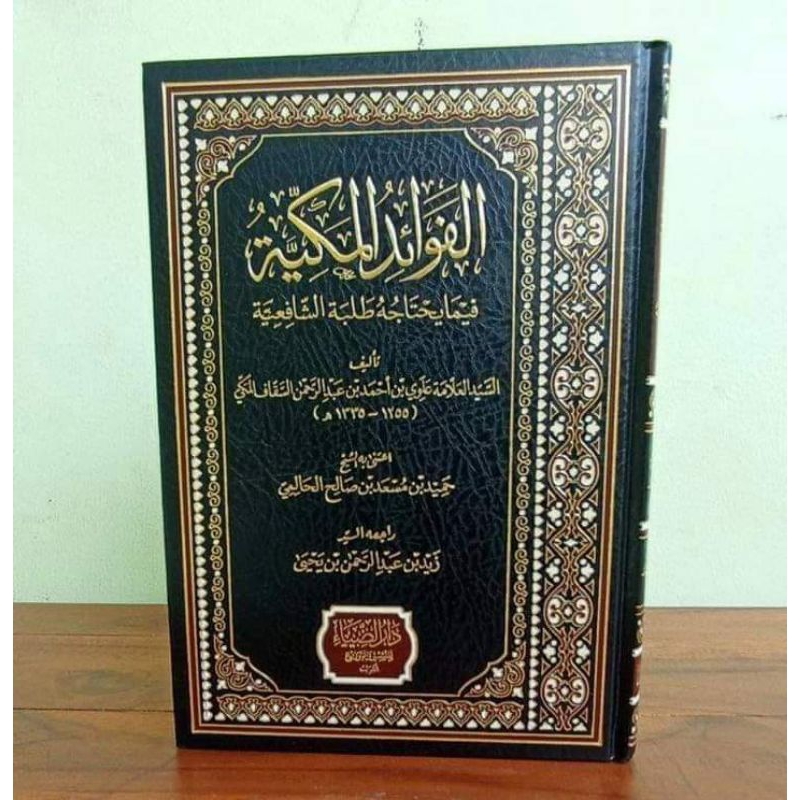 الفَوَائِدُ المَكِّيَّةُ
فِيمَا يَحْتَاجُهُ طَلَبَةُ الشَّافِعِيَّة
تأليف
السَّيِّد العَلَّامَة عَلَوي بن أَحْمَد بن عَبْد الرَّحْمٰن السَّقَّاف المَكِّي
(١٢٥٥ - ١٣٣٥ هـ)
اعتنى به الشيخ
حَمِيد بن مُسْعَد بن صَالِح الحَالِمِي
راجعه السيد
زَيْد بن عَبْد الرَّحْمٰن بن يَحْيَىٰ
دَارُ الضِّيَاءِ
للنشر والتوزيع
الكويت